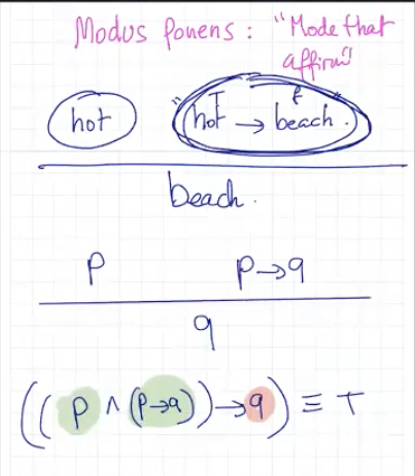 Modus Ponens : "Mode that
affirms"
T F
hot "hot → beach."
beach.
P P→q
q
((P ∧ (P→q))→q) ≡ T